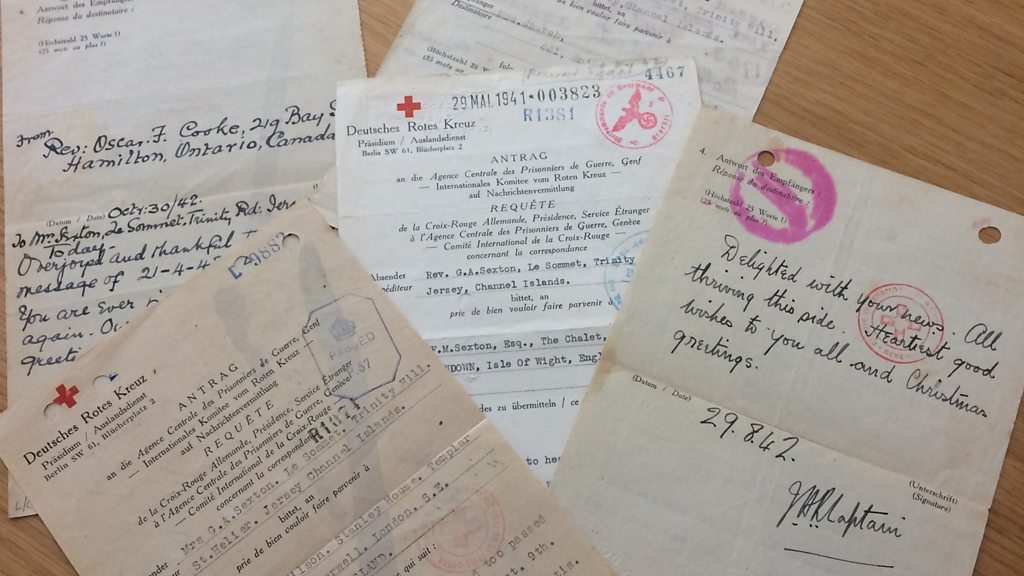 4. Antwort des Empfängers :
Réponse du destinataire :
(Höchstzahl 25 Worte !)
(25 mots au plus !)
From
Rev. Oscar. F. Cooke, 219 Bay
Hamilton, Ontario, Canada
(Datum / Date) Oct: 30/42.
To Mrs Sexton, Le Sommet, Trinity, Rd:
Today.
Overjoyed and thankful
message of 21-4-42
You are ever
again.
Trinity Hill,
Channel Islands.
Destinataire
(Höchstzahl 25 Worte !)
(25 mots au plus !)
4467
29.MAI.1941*003823
R1381
Deutsches Rotes Kreuz
Präsidium / Auslandsdienst
Berlin SW 61, Blücherplatz 2
ANTRAG
an die Agence Centrale des Prisonniers de Guerre, Genf
— Internationales Komitee vom Roten Kreuz —
auf Nachrichtenvermittlung
REQUÊTE
de la Croix-Rouge Allemande, Présidence, Service Étranger
à l'Agence Centrale des Prisonniers de Guerre, Genève
— Comité International de la Croix-Rouge —
concernant la correspondance
Absender Rev. G.A.Sexton, Le Sommet, Trinity
Expéditeur Jersey, Channel Islands.
bittet, an
prie de bien vouloir faire parvenir à
F.M.Sexton, Esq., The Chalet,
Isle of Wight,
zu übermitteln / ce
4. Antwort des Empfängers :
Réponse du destinataire :
(Höchstzahl 25 Worte !)
(25 mots au plus !)
Delighted with your news. All
thriving this side. Heartiest good
wishes to you all and Christmas
greetings.
(Datum / Date)
29.8.42.
(Unterschrift)
(Signature)
Deutsches Rotes Kreuz
Präsidium / Auslandsdienst
Berlin SW 61, Blücherplatz 2
PASSED
ANTRAG
an die Agence Centrale des Prisonniers de Guerre, Genf
— Internationales Komitee vom Roten Kreuz —
auf Nachrichtenvermittlung
REQUÊTE
de la Croix-Rouge Allemande, Présidence, Service Étranger
à l'Agence Centrale des Prisonniers de Guerre, Genève
— Comité International de la Croix-Rouge —
concernant la correspondance
Mrs G.A.Sexton. Le Sommet, Trinity Hill.
St.Helier. Jersey Channel Islands.
bittet, an
prie de bien vouloir faire parvenir à
Stanley House, Templar
London, S.E.
qui suit :
too passed
9th.